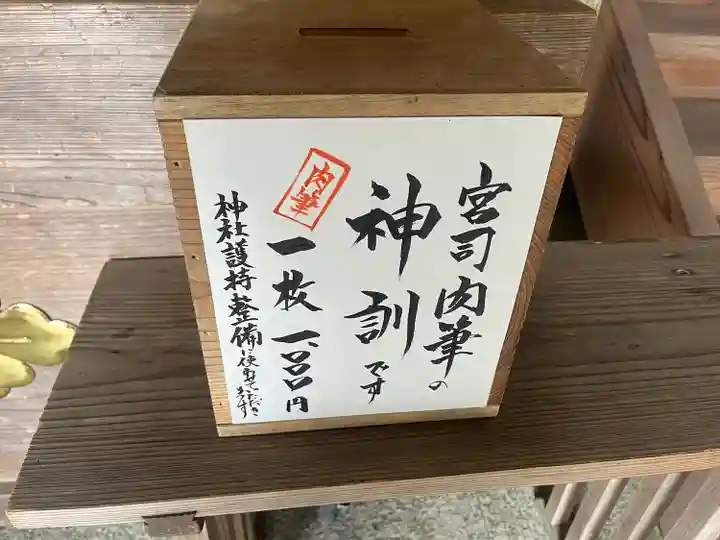 宮司肉筆の
神訓です
肉筆
一枚 一、〇〇〇円
神社護持整備に使わせていただきます